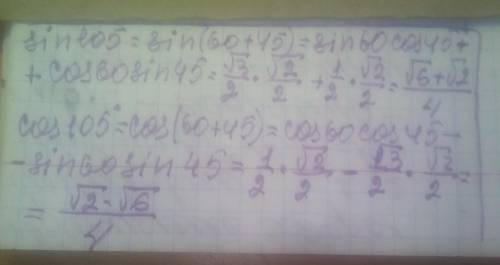 sin105°=sin(60+45)=sin60cos45+
+cos60sin45=√3/2·√2/2+1/2·√2/2=√6+√2/4
cos105°=cos(60+45)=cos60cos45-
-sin60sin45=1/2·√2/2-√3/2·√2/2=
=√2-√6/4